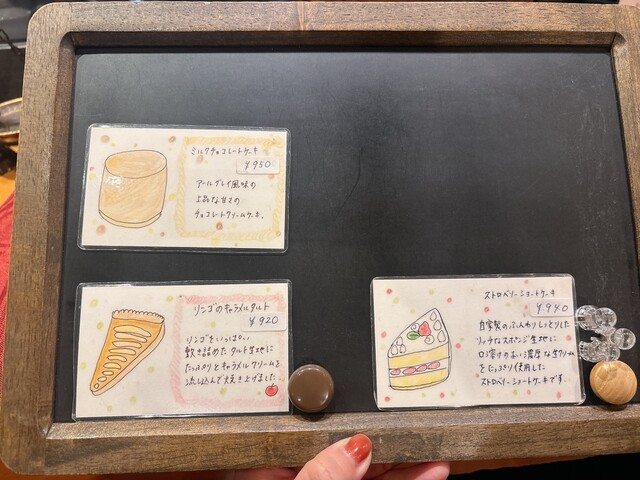 ミルクチョコレートケーキ
¥950
アールグレイ風味の
上品な甘さの
チョコレートクリームケーキ。
リンゴのキャラメルタルト
¥920
リンゴをいっぱい
敷き詰めたタルト生地に
たっぷりとキャラメルクリームを
流し込んで焼き上げました
ストロベリーショートケーキ
¥940
自家製のふんわりしっとりした
リッチなスポンジ生地に
口溶けのよい濃厚な生クリーム
をたっぷり使用した
ストロベリーショートケーキです。